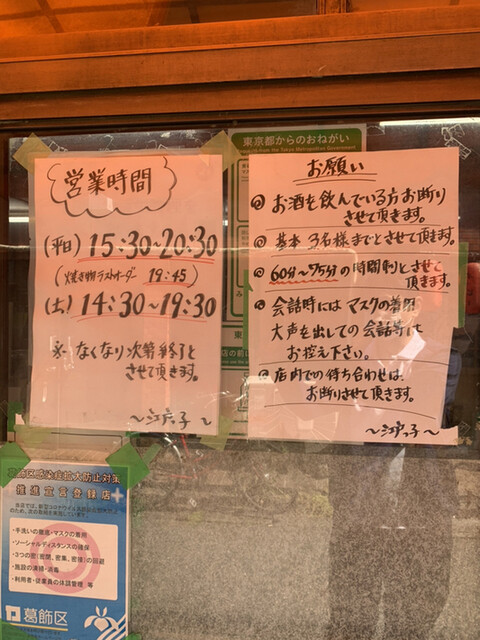 営業時間
(平日) 15:30~20:30
(焼き物ラストオーダー 19:45)
(土) 14:30~19:30
※ なくなり次第終了と
させて頂きます。
～江戸っ子～
東京都からのおねがい
from the Tokyo Metropolitan Government
お願い
◎ お酒を飲んでいる方お断り
させて頂きます。
◎ 基本 3名様までとさせて頂きます。
◎ 60分~75分の時間制とさせて
頂きます。
◎ 会話時にはマスクの着用
大声を出しての会話等は
お控え下さい。
◎ 店内での待ち合わせは、
お断りさせて頂きます。
～江戸っ子～
葛飾区感染症拡大防止対策
推進宣言登録店
・手洗いの徹底・マスクの着用
・ソーシャルディスタンスの確保
・3つの密(密閉、密集、密接)の回避
・施設の清掃・消毒
・利用者・従業員の体調管理 等
葛飾区